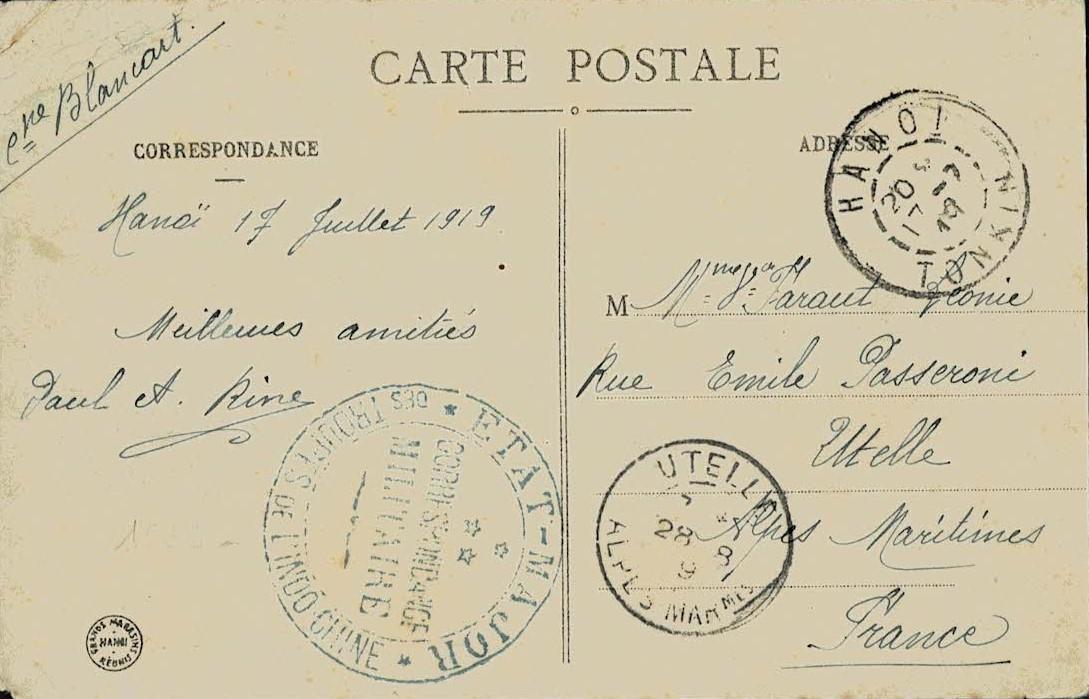 Cne Blancart.
CARTE POSTALE
CORRESPONDANCE
ADRESSE
HANOI
TONKIN
20
17 - 7
19
Hanoï 17 Juillet 1919.
Meilleures amitiés
Paul et A. Rine
M Faraut Léonie
Rue Emile Passeroni
Utelle
Alpes Maritimes
France
ETAT-MAJOR
DES TROUPES DE L'INDO-CHINE
CORRESPONDANCE
MILITAIRE
UTELLE
28 8
ALPES MARMES
GRANDS MAGASINS
HANOI
RÉUNIS